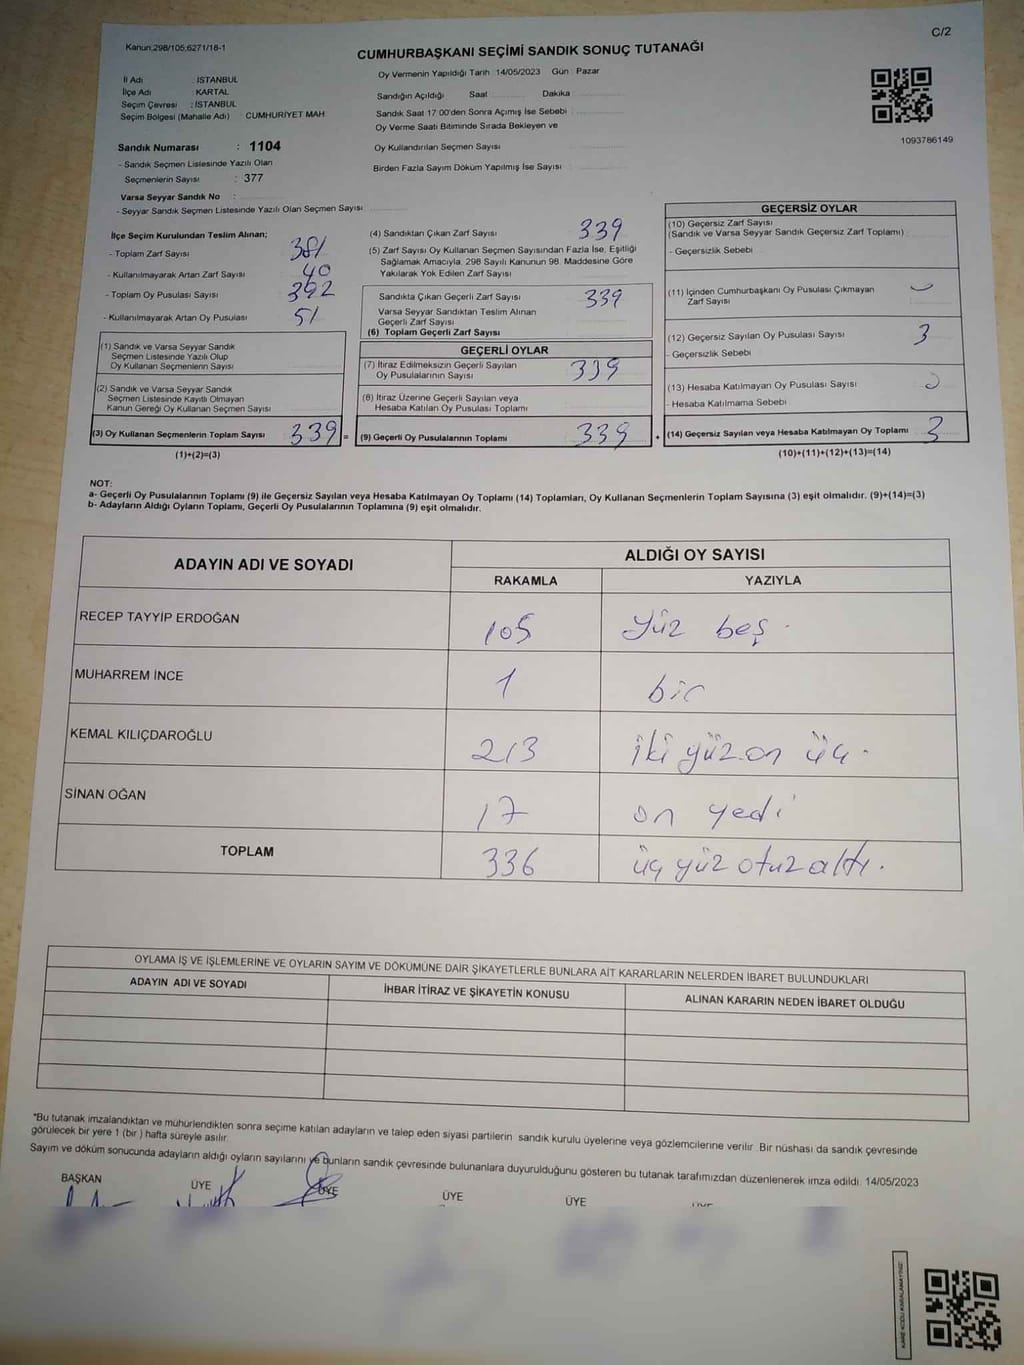 Kanun;298/105;6271/18-1
C/2
CUMHURBAŞKANI SEÇİMİ SANDIK SONUÇ TUTANAĞI
Oy Vermenin Yapıldığı Tarih :14/05/2023 Gün : Pazar
İl Adı : İSTANBUL
İlçe Adı : KARTAL
Seçim Çevresi : İSTANBUL
Seçim Bölgesi (Mahalle Adı) : CUMHURİYET MAH
Sandık Numarası : 1104
- Sandık Seçmen Listesinde Yazılı Olan
Seçmenlerin Sayısı : 377
Varsa Seyyar Sandık No :
- Seyyar Sandık Seçmen Listesinde Yazılı Olan Seçmen Sayısı
Sandığın Açıldığı Saat Dakika
Sandık Saat 17:00'den Sonra Açımış İse Sebebi :
Oy Verme Saati Bitiminde Sırada Bekleyen ve
Oy Kullandırılan Seçmen Sayısı
Birden Fazla Sayım Döküm Yapılmış İse Sayısı :
1093786149
İlçe Seçim Kurulundan Teslim Alınan;
- Toplam Zarf Sayısı : 381
- Kullanılmayarak Artan Zarf Sayısı : 40
- Toplam Oy Pusulası Sayısı : 392
- Kullanılmayarak Artan Oy Pusulası : 51
(1) Sandık ve Varsa Seyyar Sandık
Seçmen Listesinde Yazılı Olup
Oy Kullanan Seçmenlerin Sayısı
(2) Sandık ve Varsa Seyyar Sandık
Seçmen Listesinde Kayıtlı Olmayan
Kanun Gereği Oy Kullanan Seçmen Sayısı
(3) Oy Kullanan Seçmenlerin Toplam Sayısı 339 =
(1)+(2)=(3)
(4) Sandıktan Çıkan Zarf Sayısı : 339
(5) Zarf Sayısı Oy Kullanan Seçmen Sayısından Fazla İse, Eşitliği
Sağlamak Amacıyla, 298 Sayılı Kanunun 98. Maddesine Göre
Yakılarak Yok Edilen Zarf Sayısı
Sandıkta Çıkan Geçerli Zarf Sayısı : 339
Varsa Seyyar Sandıktan Teslim Alınan
Geçerli Zarf Sayısı
(6) Toplam Geçerli Zarf Sayısı
GEÇERLİ OYLAR
(7) İtiraz Edilmeksizin Geçerli Sayılan
Oy Pusulalarının Sayısı : 339
(8) İtiraz Üzerine Geçerli Sayılan veya
Hesaba Katılan Oy Pusulası Toplamı
(9) Geçerli Oy Pusulalarının Toplamı 339 +
GEÇERSİZ OYLAR
(10) Geçersiz Zarf Sayısı
(Sandık ve Varsa Seyyar Sandık Geçersiz Zarf Toplamı)
- Geçersizlik Sebebi
(11) İçinden Cumhurbaşkanı Oy Pusulası Çıkmayan
Zarf Sayısı
(12) Geçersiz Sayılan Oy Pusulası Sayısı : 3
- Geçersizlik Sebebi
(13) Hesaba Katılmayan Oy Pusulası Sayısı :
- Hesaba Katılmama Sebebi
(14) Geçersiz Sayılan veya Hesaba Katılmayan Oy Toplamı 3
(10)+(11)+(12)+(13)=(14)
NOT:
a- Geçerli Oy Pusulalarının Toplamı (9) ile Geçersiz Sayılan veya Hesaba Katılmayan Oy Toplamı (14) Toplamları, Oy Kullanan Seçmenlerin Toplam Sayısına (3) eşit olmalıdır. (9)+(14)=(3)
b- Adayların Aldığı Oyların Toplamı, Geçerli Oy Pusulalarının Toplamına (9) eşit olmalıdır.
ADAYIN ADI VE SOYADI
ALDIĞI OY SAYISI
RAKAMLA YAZIYLA
RECEP TAYYİP ERDOĞAN 105 yüz beş.
MUHARREM İNCE 1 bir
KEMAL KILIÇDAROĞLU 213 iki yüz on üç.
SİNAN OĞAN 17 on yedi
TOPLAM 336 üç yüz otuz altı.
OYLAMA İŞ VE İŞLEMLERİNE VE OYLARIN SAYIM VE DÖKÜMÜNE DAİR ŞİKAYETLERLE BUNLARA AİT KARARLARIN NELERDEN İBARET BULUNDUKLARI
ADAYIN ADI VE SOYADI İHBAR İTİRAZ VE ŞİKAYETİN KONUSU ALINAN KARARIN NEDEN İBARET OLDUĞU
*Bu tutanak imzalandıktan ve mühürlendikten sonra seçime katılan adayların ve talep eden siyasi partilerin sandık kurulu üyelerine veya gözlemcilerine verilir. Bir nüshası da sandık çevresinde
görülecek bir yere 1 (bir ) hafta süreyle asılır.
Sayım ve döküm sonucunda adayların aldığı oyların sayılarını ve bunların sandık çevresinde bulunanlara duyurulduğunu gösteren bu tutanak tarafımızdan düzenlenerek imza edildi. 14/05/2023
BAŞKAN ÜYE ÜYE ÜYE ÜYE ÜYE